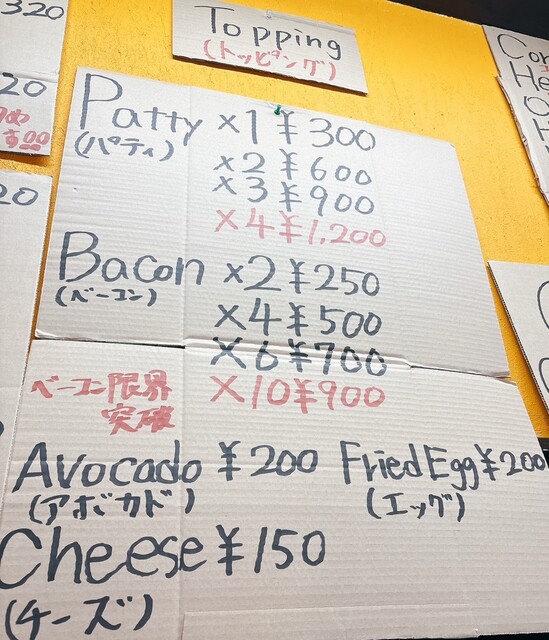 320
Topping
(トッピング)
20
Patty ×1 ¥300
(パティ)
×2 ¥600
×3 ¥900
×4 ¥1,200
Bacon ×2 ¥250
(ベーコン)
×4 ¥500
×6 ¥700
ベーコン限界
突破
×10 ¥900
Avocado ¥200
(アボカド)
Fried Egg ¥200
(エッグ)
Cheese ¥150
(チーズ)
20